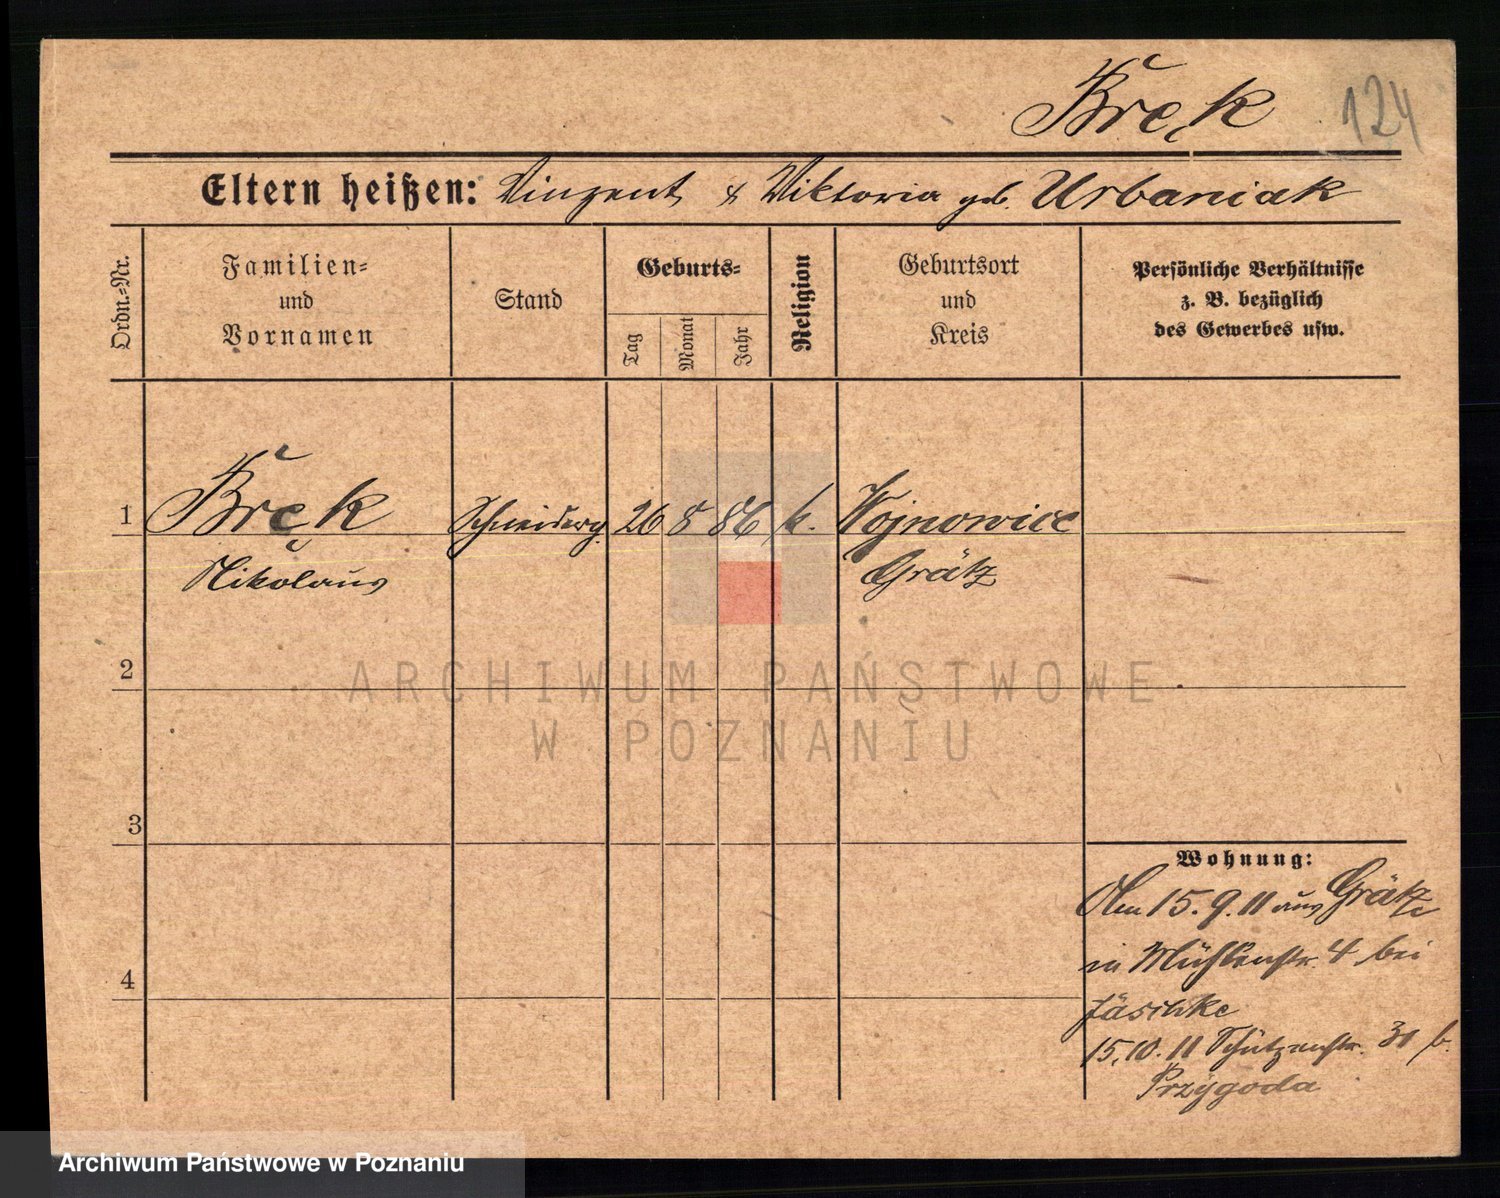 Bręk 124
Eltern heißen: Vinzent & Viktoria geb. Urbaniak
Ordn.-Nr.
Familien-
und
Vornamen
Stand
Geburts-
Tag
Monat
Jahr
Religion
Geburtsort
und
Kreis
Persönliche Verhältnisse
z. B. bezüglich
des Gewerbes usw.
1 Bręk Schneiderg. 26 8 86 k. Wojnowice
Nikolaus Grätz
2
ARCHIWUM PAŃSTWOWE
W POZNANIU
3
Wohnung:
Am 15.9.11 aus Grätz
in Mühlenstr. 4 bei
4
Jäschke
15.10.11 Schützenstr. 31 b.
Przygoda
Archiwum Państwowe w Poznaniu